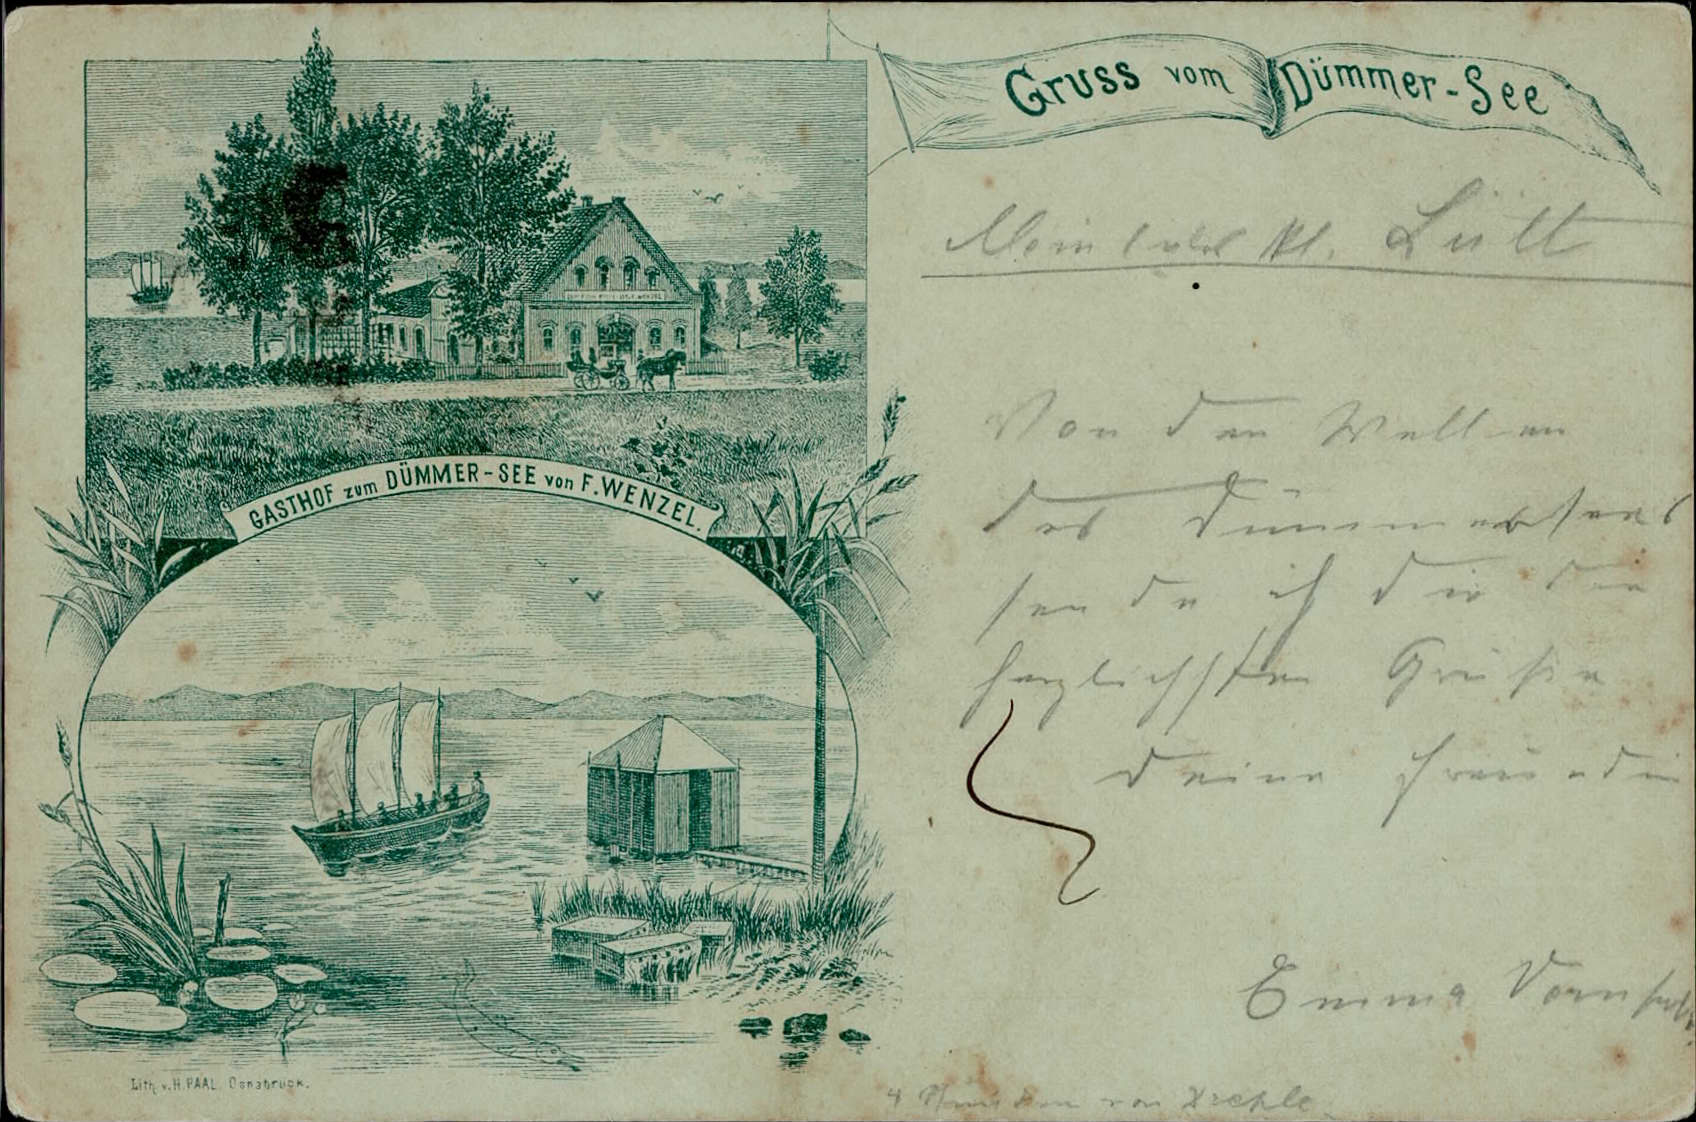 Gruss vom Dümmer-See
GASTHOF zum DÜMMER-SEE von F. WENZEL.
Mein kl. Lütt
Von den Wellen
des Dümmersees
sende ich dir die
herzlichsten Grüße
deine Freundin
Emma
4 Stunden von
Lith. v. H. PAAL. Osnabrück.